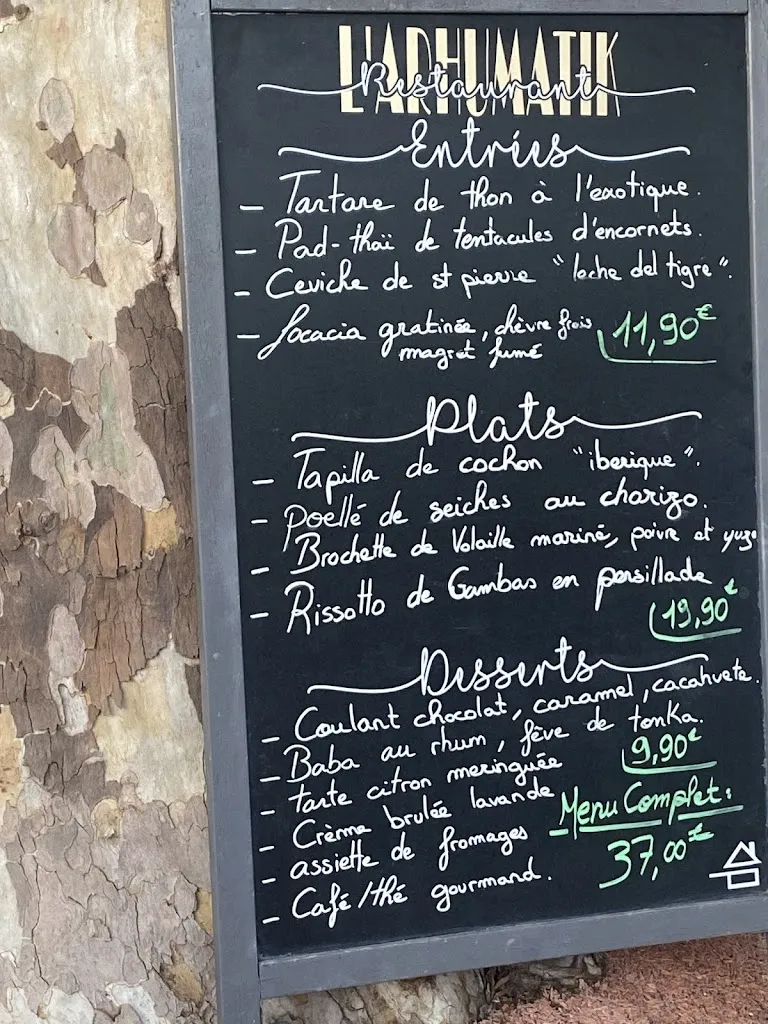 L'ARHUMATIK
Restaurant
Entrées
- Tartare de thon à l'exotique.
- Pad-thaï de tentacules d'encornets.
- Ceviche de st pierre "leche del tigre".
- focacia gratinée, chèvre frais
magret fumé
11,90€
Plats
- Tapilla de cochon "iberique".
- poellé de seiches au chorizo.
- Brochette de Volaille mariné, poivre et yuzo
- Rissotto de Gambas en persillade
19,90€
Desserts
- Coulant chocolat, caramel, cacahuete.
- Baba au rhum, fève de tonka.
9,90€
- tarte citron meringuée
- Crème brulée lavande
Menu Complet:
- assiette de fromages
37,00€
- Café/thé gourmand.